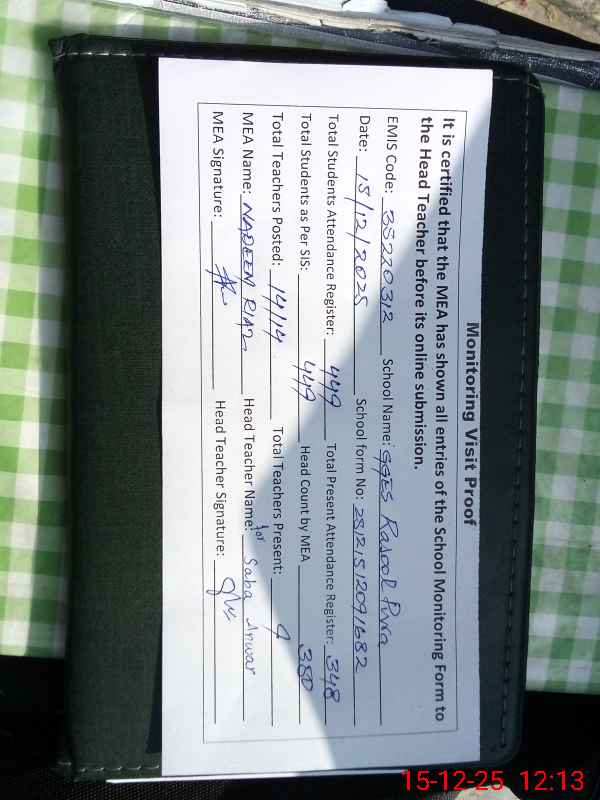 Monitoring Visit Proof
It is certified that the MEA has shown all entries of the School Monitoring Form to
the Head Teacher before its online submission.
EMIS Code: 35220312 School Name: GGES Rasool Pura
Date: 15/12/2025 School form No:
Total Students Attendance Register: 449 Total Present Attendance Register: 348
Total Students as Per SIS: 449 Head Count by MEA 380
Total Teachers Posted: 14/14 Total Teachers Present: 9
MEA Name: NADEEM RIAZ Head Teacher Name: for Saba Anwar
MEA Signature: Head Teacher Signature:
15-12-25 12:13